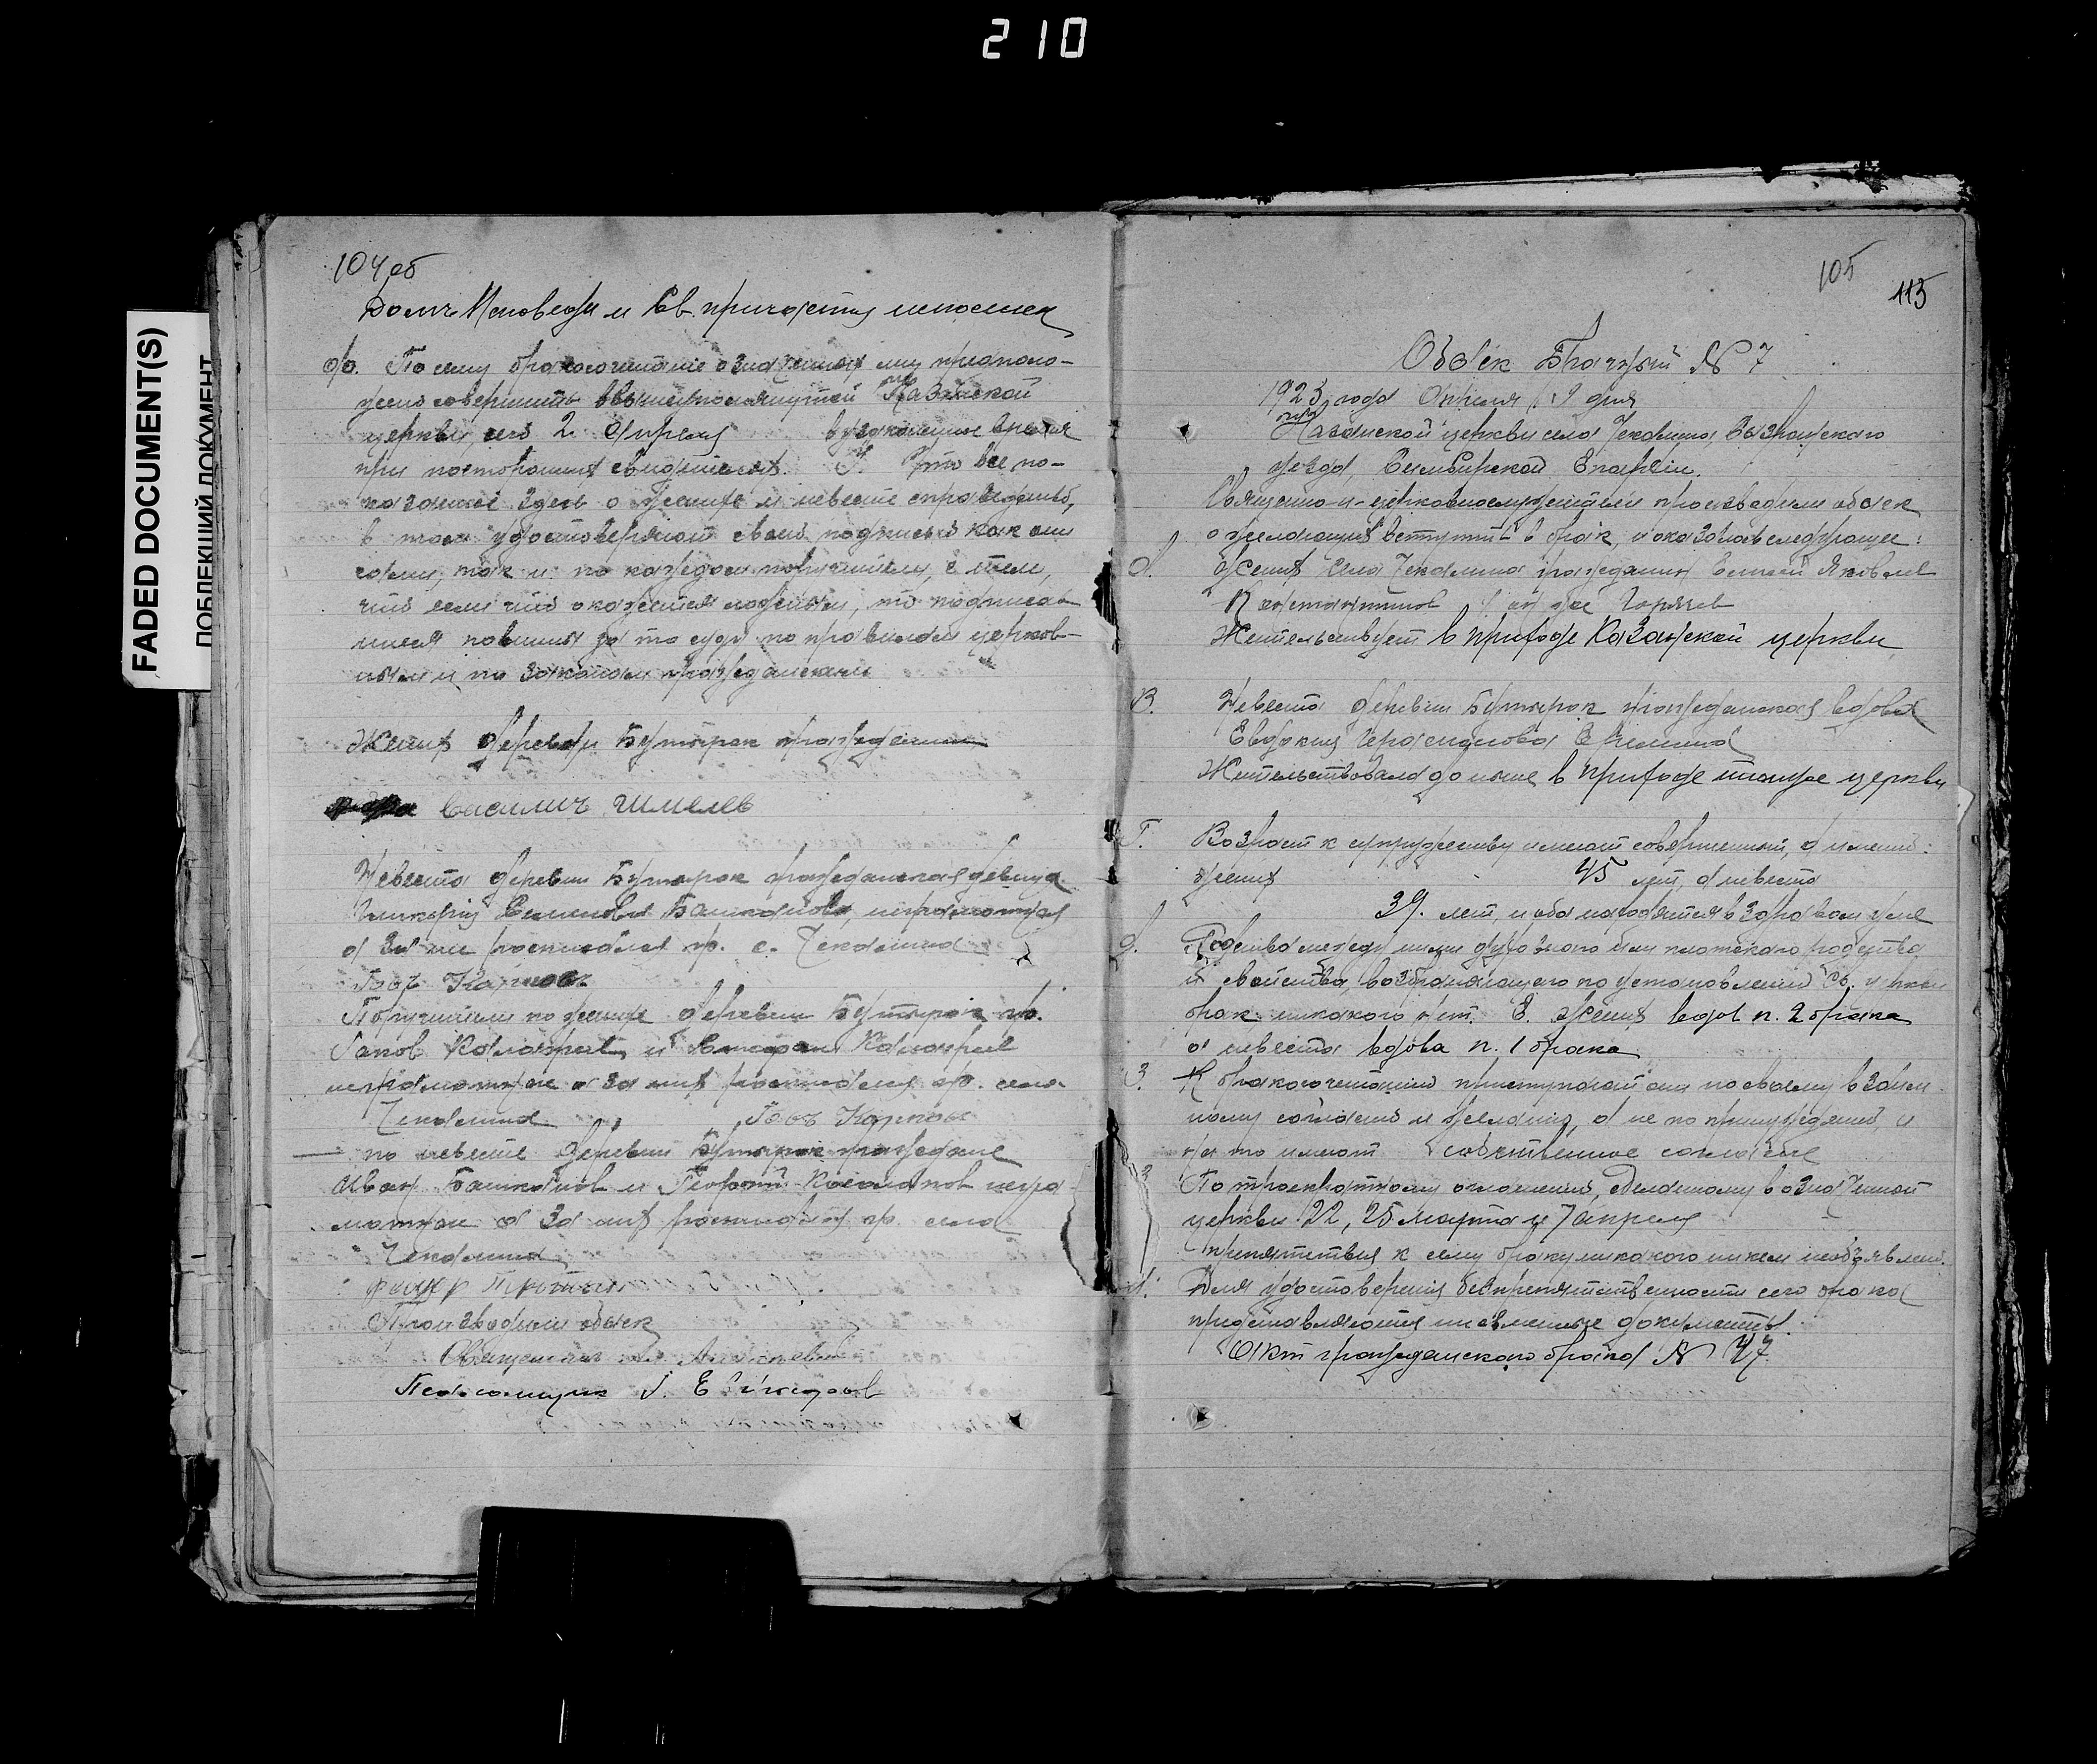 210
FADED DOCUMENT(S)
ПОБЛЕКШИЙ ДОКУМЕНТ
104 об
Долг Исповеди и Св. причастия исполнен
ф. По сему бракосочетание означенных лиц предполо-
жено совершить в вышеупомянутой Казанской
церкви, сего 2 Апреля в узаконенное время
при посторонних свидетелях. Что все по-
казанное здесь о женихе и невесте справедливо,
в том удостоверяют своею подписью как они
сами, так и по каждом поручители, с тем,
что если что окажется ложным, то подписав-
шиеся повинны за то суду по правилам церков-
ным и по законам гражданским
Жених деревни Бутырок гражданин
Василич Шмелев
Невеста деревни Бутырок гражданская девица
Башканова, неграмотная
а за нее расписался гр. с. Чекалина
Карпов
Поручители по женихе деревни Бутырок гр.
и
неграмотные а за них расписался гр. села
Чекалина Карпов
по невесте деревни Бутырок граждане
Иван Башканов и негра
мотные а за них расписался гр. села
Чекалина
Производили обыск
Священник
Псаломщик
105
115
Обыск Брачный № 7
1923 года Апреля 9 дня
Казанской церкви села Чекалина Сызранского
уезда, Симбирской Епархии.
Священно-и-церковнослужители производили обыск
о желающих вступить в брак, и оказалось следующее:
А. Жених села Чекалина гражданин Яковлев
Константинов он же
Жительствует в приходе Казанской церкви
В. Невеста деревни Бутырок гражданская вдова
Евдокия Герасимова
Жительствовала до ныне в приходе той же церкви
Г. Возраст к супружеству имеют совершенный, а именно:
жених 45 лет, а невеста
39. лет, и оба находятся в здравом уме
д. Родства между ними духовного или плотского родства
и свойства, возбраняющего по установлению Св. церкви
брак никакого нет. Е. жених вдов п. 2 брака
а невеста вдова п. 1 брака
З. К бракосочетанию приступают они по своему взаим
ному согласию и желанию, а не по принуждению, и
на то имеют собственное согласие
По троекратному оглашению, сделанному в означенной
церкви 22, 25 марта и 7 апреля
препятствия к сему браку никакого никем не объявлено.
И. Для удостоверения беспрепятственности сего брака
представляются письменные документы.
Акт гражданского брака № 47